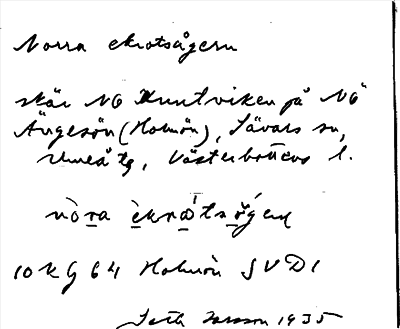 Norra ekrotsågern
skär NO Kuntviken på NÖ
Ängesön (Holmön), Sävars sn,
Umeå tg, Västerbottens l.
nòra èkrωtsǫ́gεɳ
10 KG 64 Holmön SV D1
Seth Larsson 1935